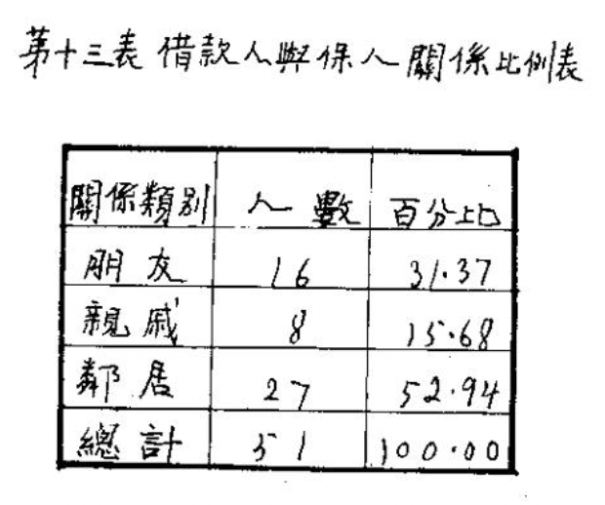 第十三表 借款人與保人關係比例表
關係類別 人數 百分比
朋友 16 31.37
親戚 8 15.68
鄰居 27 52.94
總計 51 100.00